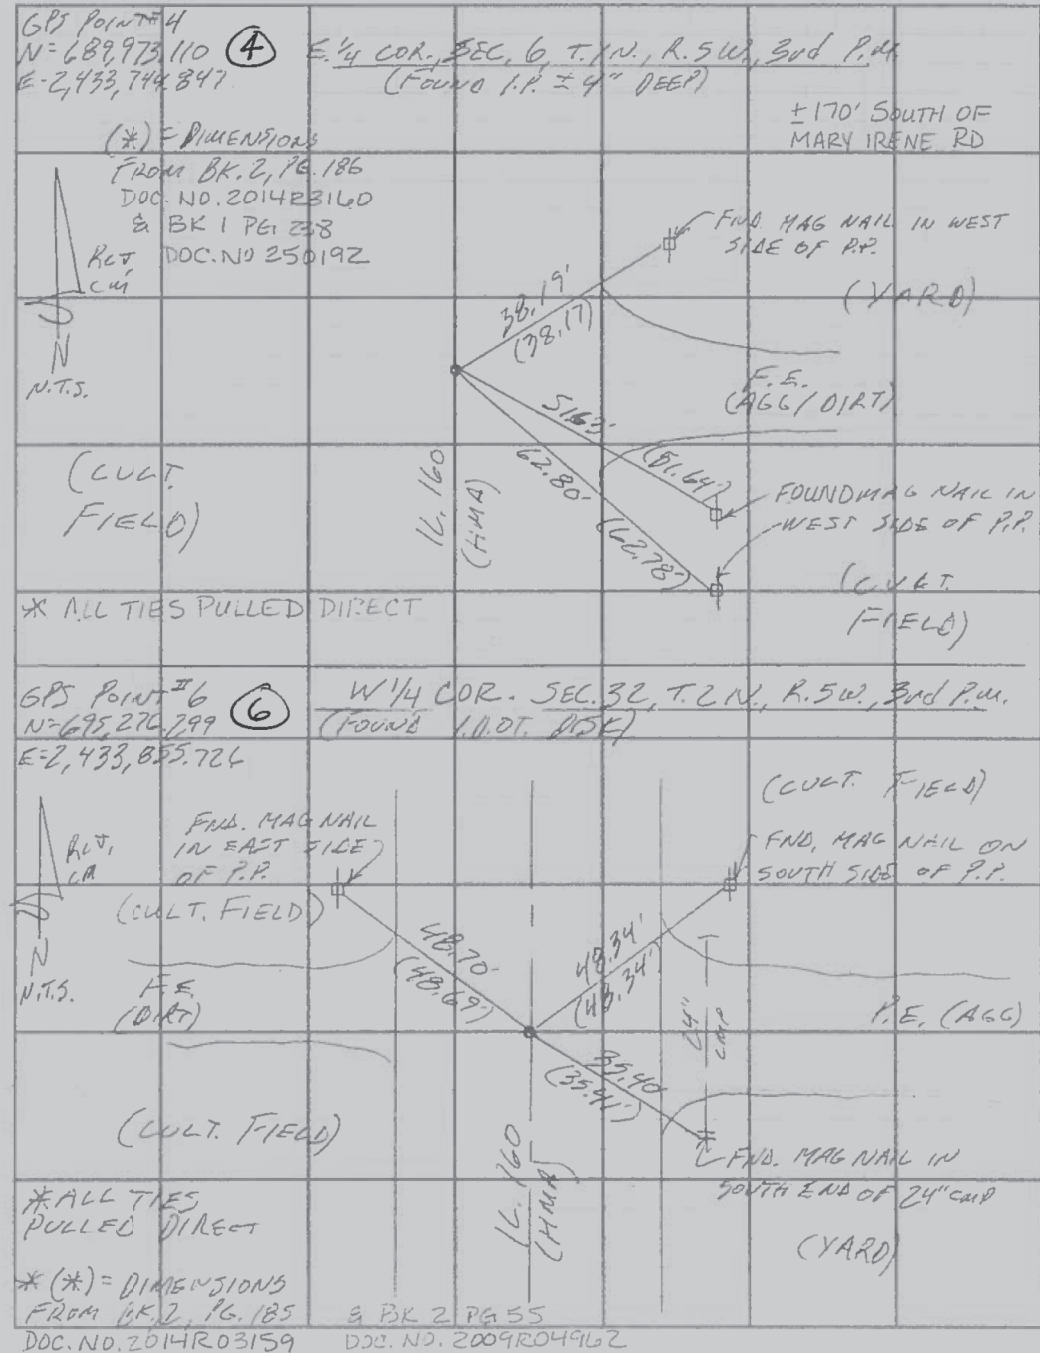 GPS POINT #4
N=689,973.110
E-2,433,744.847
4
E. 1/4 COR., SEC. 6, T.1N., R.5W., 3rd P.M.
(FOUND I.P. ± 4" DEEP)
±170' SOUTH OF
MARY IRENE RD
(*) = DIMENSIONS
FROM BK. 2, PG. 186
DOC. NO. 2014R3160
& BK 1 PG 238
DOC. NO 250192
RLJ,
CM
N
N.T.S.
FND. MAG NAIL IN WEST
SIDE OF P.P.
(YARD)
38.19'
(38.17)
F.E.
(AGG/DIRT)
51.63'
(51.64')
62.80'
(62.78')
(CULT.
FIELD)
IL. 160
(HMA)
FOUND MAG NAIL IN
WEST SIDE OF P.P.
(CULT.
FIELD)
* ALL TIES PULLED DIRECT
GPS POINT #6
N=695,276.299
E=2,433,855.726
6
W 1/4 COR. SEC. 32, T.2N., R.5W., 3rd P.M.
(FOUND I.D.O.T. DISK)
(CULT. FIELD)
RLJ,
CM
N
N.T.S.
FND. MAG NAIL
IN EAST SIDE
OF P.P.
FND. MAG NAIL ON
SOUTH SIDE OF P.P.
(CULT. FIELD)
48.70'
(48.69')
48.34'
(48.34')
F.E.
(DIRT)
24"
CMP
P.E. (AGG)
35.40
(35.41')
(CULT. FIELD)
IL. 160
(HMA)
FND. MAG NAIL IN
SOUTH END OF 24" CMP
(YARD)
* ALL TIES
PULLED DIRECT
* (*) = DIMENSIONS
FROM BK. 2, PG. 185
DOC. NO. 2014R03159
& BK 2 PG 55
DOC. NO. 2009R04962